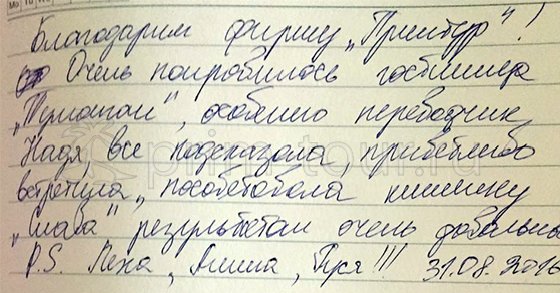 Благодарим фирму „Примтур"!
Очень понравилось гостиница
особенно переводчик
Надя все подсказала, приветливо
встретила, посоветовала клинику
результатом очень довольны
P.S. Лена, Алина, Ира!!! 31.08.2016
prim-tour.ru